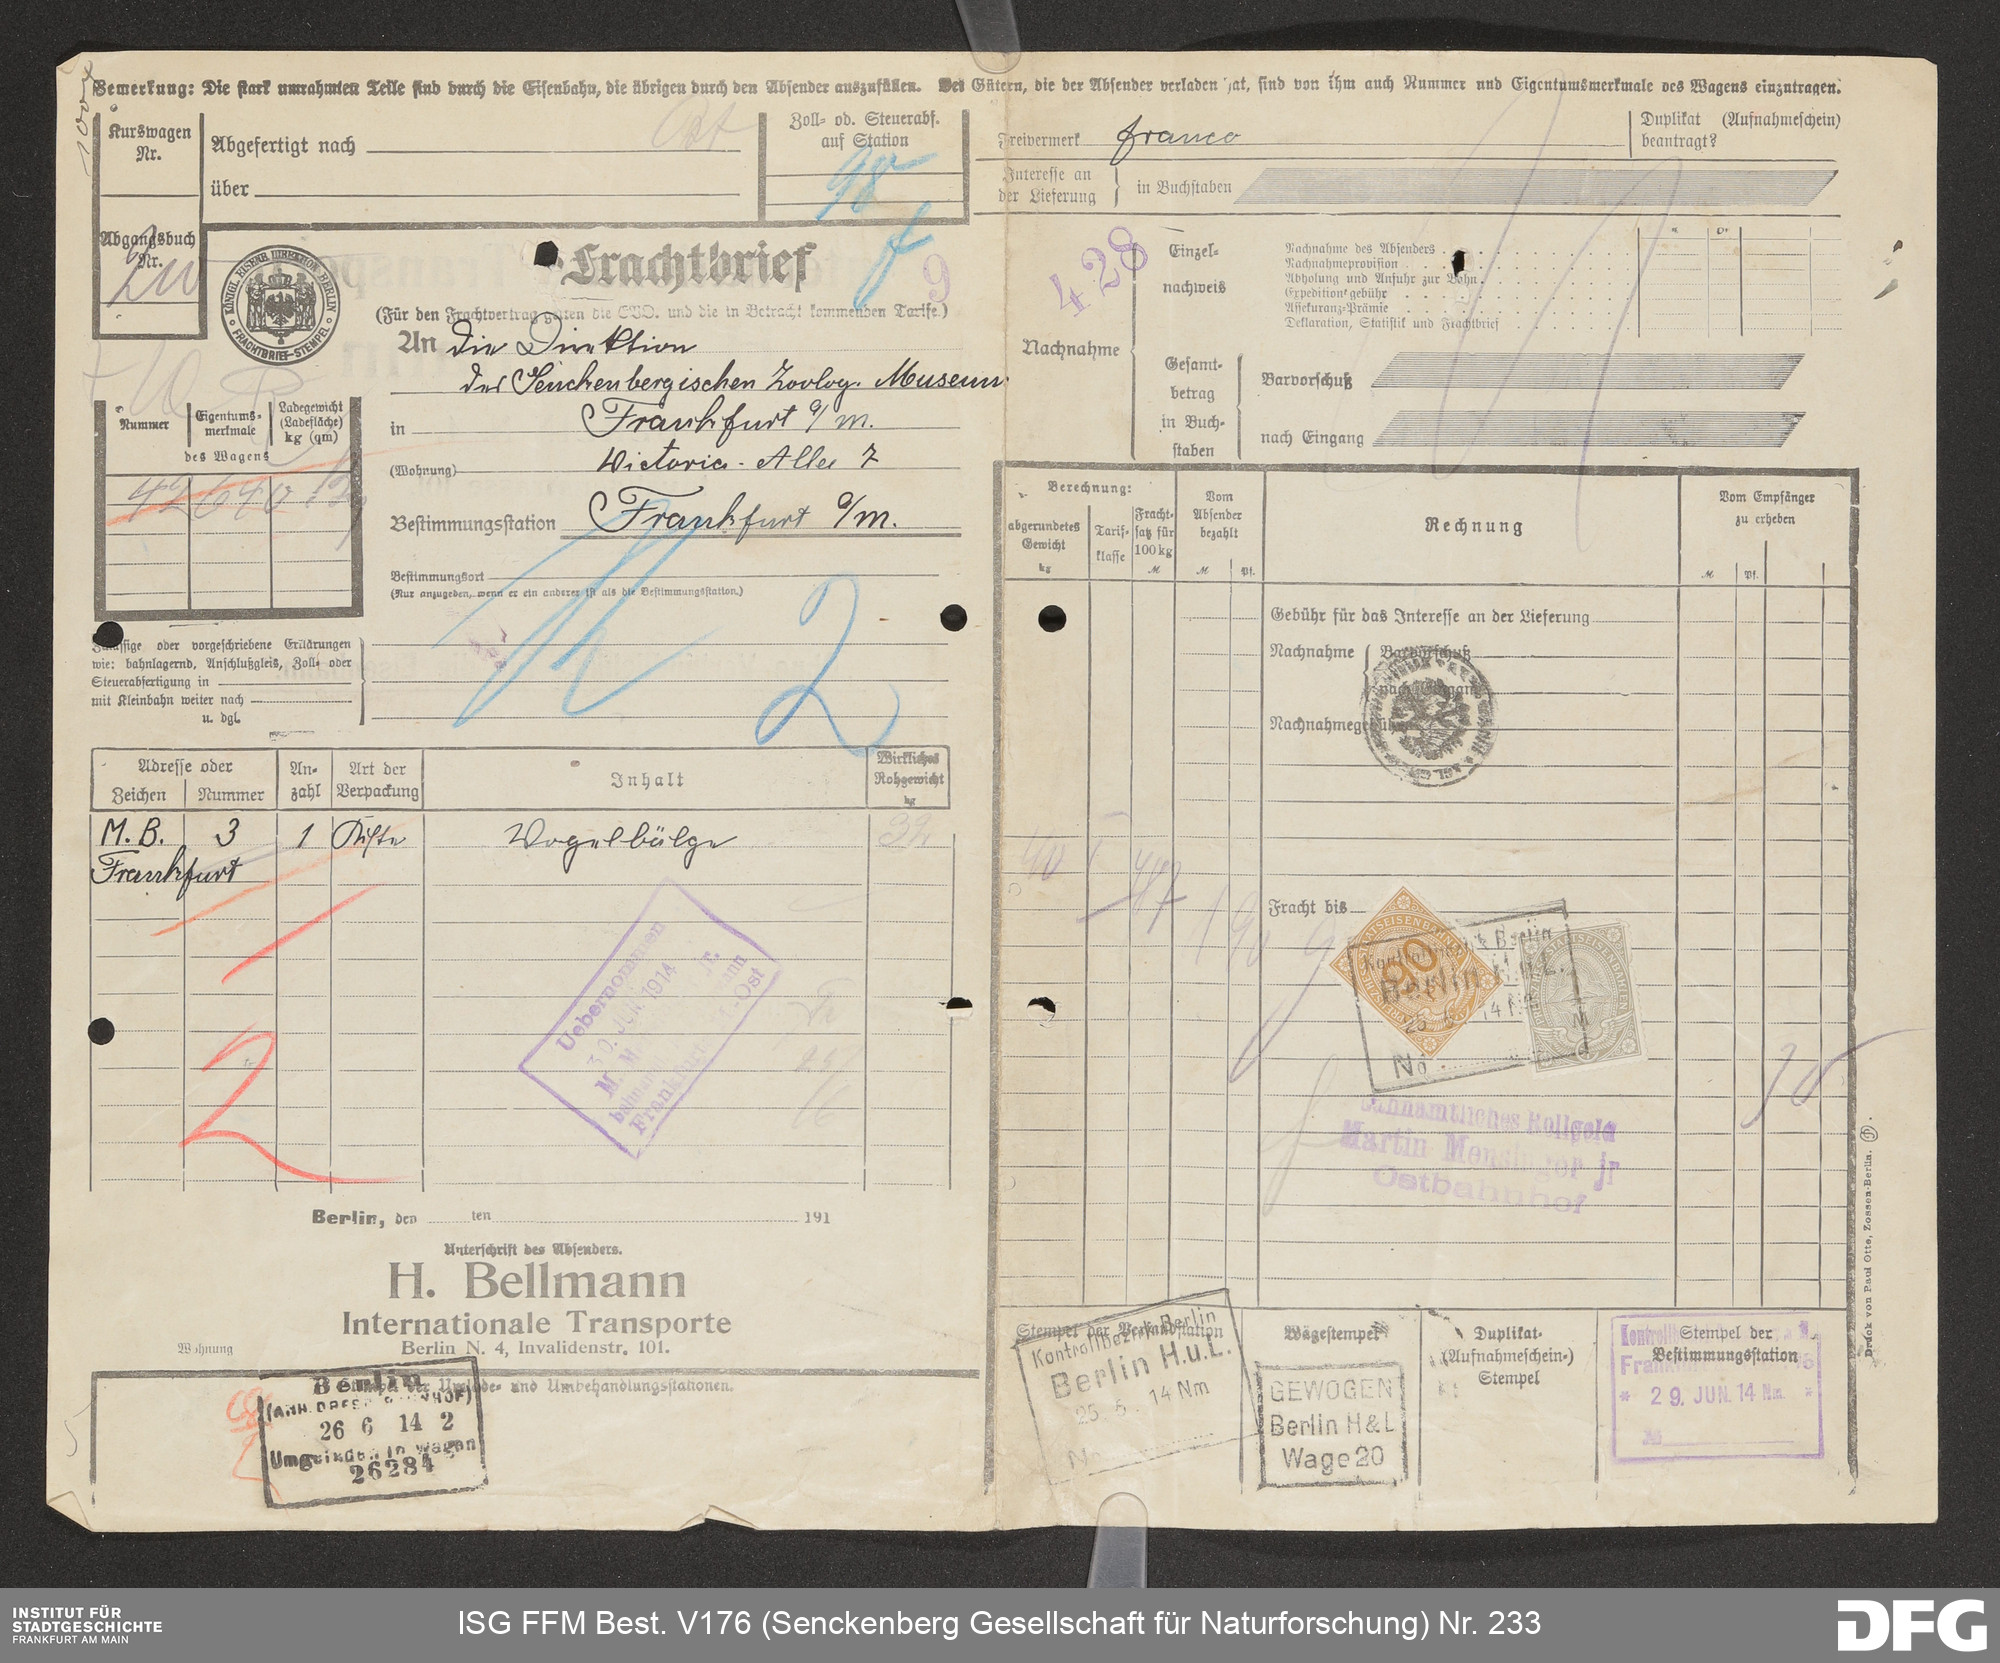 Bemerkung: Die stark umrahmten Teile sind durch die Eisenbahn, die übrigen durch den Absender auszufüllen. Bei Gütern, die der Absender verladen hat, sind von ihm auch Nummer und Eigentumsmerkmale des Wagens einzutragen.
Kurswagen Nr.
Abgefertigt nach
über
Zoll- od. Steuerabf. auf Station
Freivermerk franco
Duplikat (Aufnahmeschein) beantragt?
Interesse an der Lieferung } in Buchstaben
Abgangsbuch Nr.
KÖNIGL. EISENB. DIREKTION BERLIN
FRACHTBRIEF-STEMPEL
Frachtbrief
9
428
(Für den Frachtvertrag gelten die EVO. und die in Betracht kommenden Tarife.)
An die Direktion
des Senckenbergischen Zoolog. Museum
in Frankfurt a/M.
(Wohnung) Victoria-Allee 7
Bestimmungsstation Frankfurt a/M.
Bestimmungsort
(Nur anzugeben, wenn er ein anderer ist als die Bestimmungsstation.)
Nummer
Eigentums-merkmale
Ladegewicht (Ladefläche) kg (qm)
des Wagens
Zulässige oder vorgeschriebene Erklärungen
wie: bahnlagernd, Anschlußgleis, Zoll- oder
Steuerabfertigung in
mit Kleinbahn weiter nach
u. dgl.
2
Nachnahme
Einzel-nachweis
Nachnahme des Absenders
Nachnahmeprovision
Abholung und Anfuhr zur Bahn
Expeditionsgebühr
Assekuranz-Prämie
Deklaration, Statistik und Frachtbrief
Gesamt-betrag in Buch-staben
Barvorschuß
nach Eingang
Adresse oder
Zeichen
Nummer
An-zahl
Art der Verpackung
Inhalt
Wirkliches Rohgewicht kg
M. B. 3 1 Kiste Vogelbälge 32
Frankfurt
2
Uebernommen
30. JUN. 1914
Frankfurt
Berlin, den ten 191
Unterschrift des Absenders.
H. Bellmann
Internationale Transporte
Berlin N. 4, Invalidenstr. 101.
Wohnung
Stempel der Umlade- und Umbehandlungsstationen.
Berlin
26 6 14 2
Umgeladen in Wagen
26284
Berechnung:
abgerundetes Gewicht kg
Tarif-klasse
Fracht-satz für 100 kg M
Vom Absender bezahlt
M Pf.
Rechnung
Vom Empfänger zu erheben
M Pf.
Gebühr für das Interesse an der Lieferung
Nachnahme { Barvorschuß
nach Eingang
Nachnahmegebühr
40
Fracht bis
90
Berlin H.u.L.
No
Bahnamtliches Rollgeld
Martin Mensinger jr
Ostbahnhof
Stempel der Versandstation
Kontrollbezirk Berlin
Berlin H.u.L.
14 Nm
No
Wägestempel
GEWOGEN
Berlin H&L
Wage 20
Duplikat-(Aufnahmeschein-) Stempel
Stempel der Bestimmungsstation
* 29. JUN. 14 Nm. *
Druck von Paul Otto, Zossen-Berlin.
INSTITUT FÜR
STADTGESCHICHTE
FRANKFURT AM MAIN
ISG FFM Best. V176 (Senckenberg Gesellschaft für Naturforschung) Nr. 233
DFG